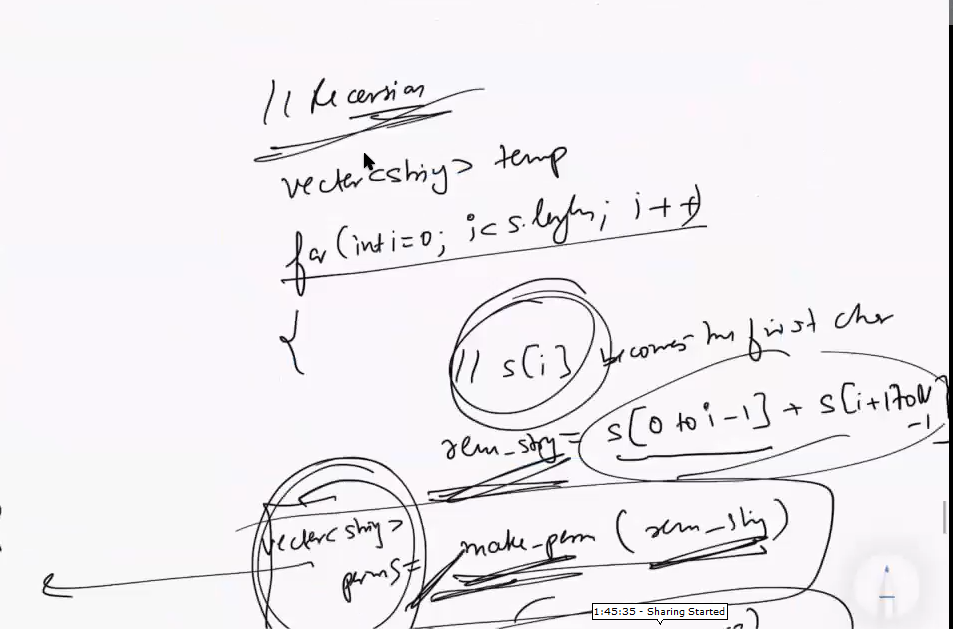 // Recursion
vector<string> temp
for(int i=0; i<s.length; i++)
{
// s[i] becomes the first char
rem_string = s[0 to i-1] + s[i+1 to N-1]
vector<string>
perms = make_perm (rem_string)
1:45:35 - Sharing Started